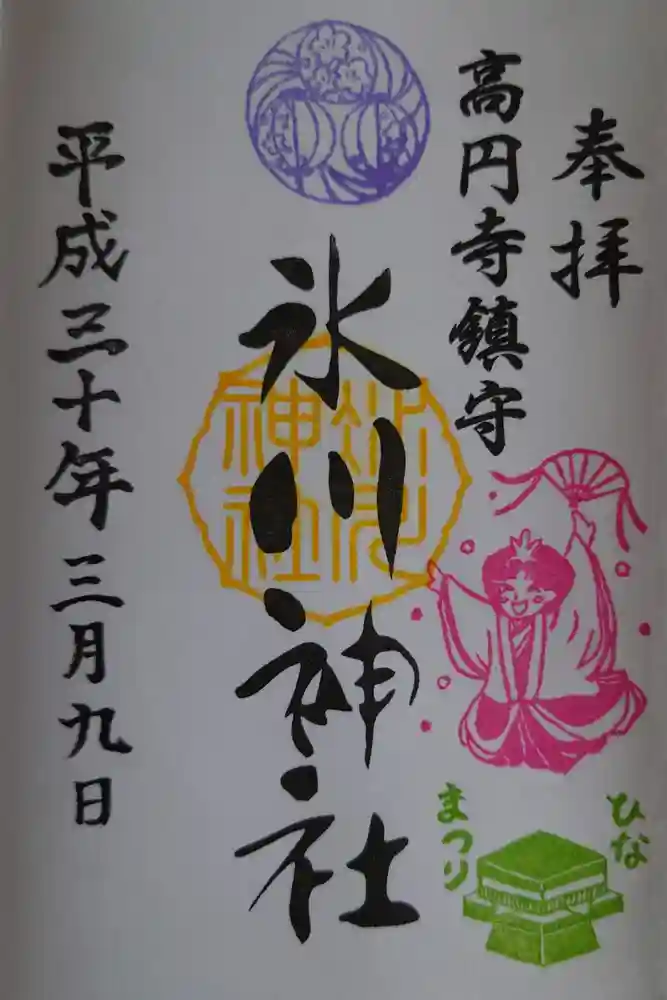 奉拝
高円寺鎮守
氷川神社
氷川
神社
平成三十年三月九日
ひな
まつり